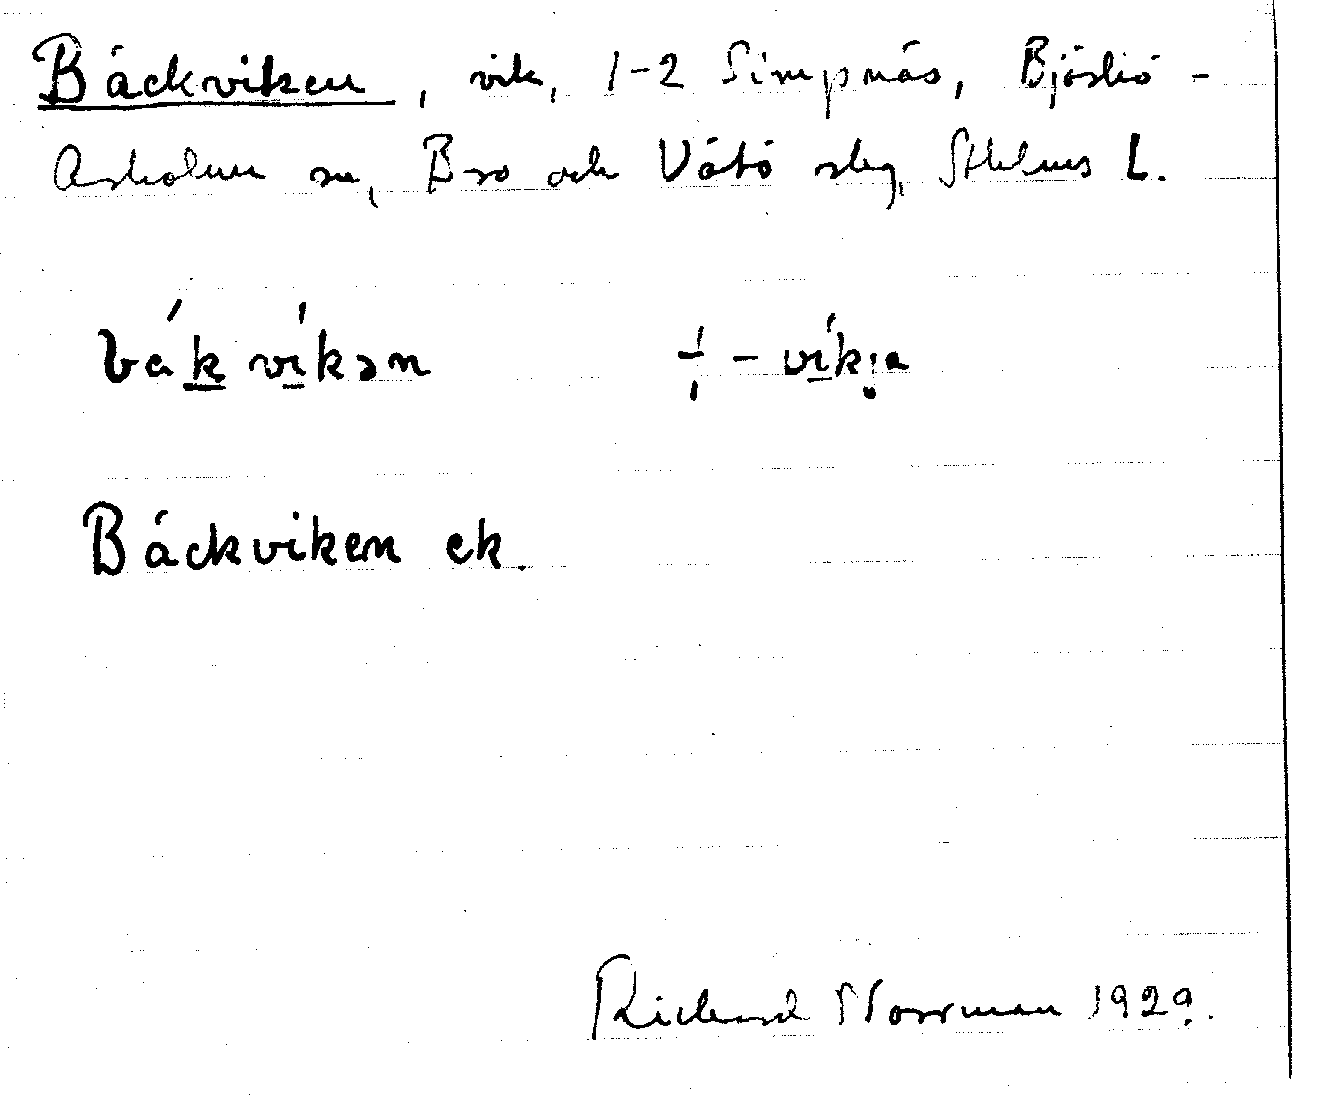 Bäckviken, vik, 1-2 Simpnäs, Björkö-
Arholma sn, Bro och Vätö slg, Sthlms L.
bákvíkən ⸓ - víkja
Bäckviken ek.
Richard Norrman 1929.